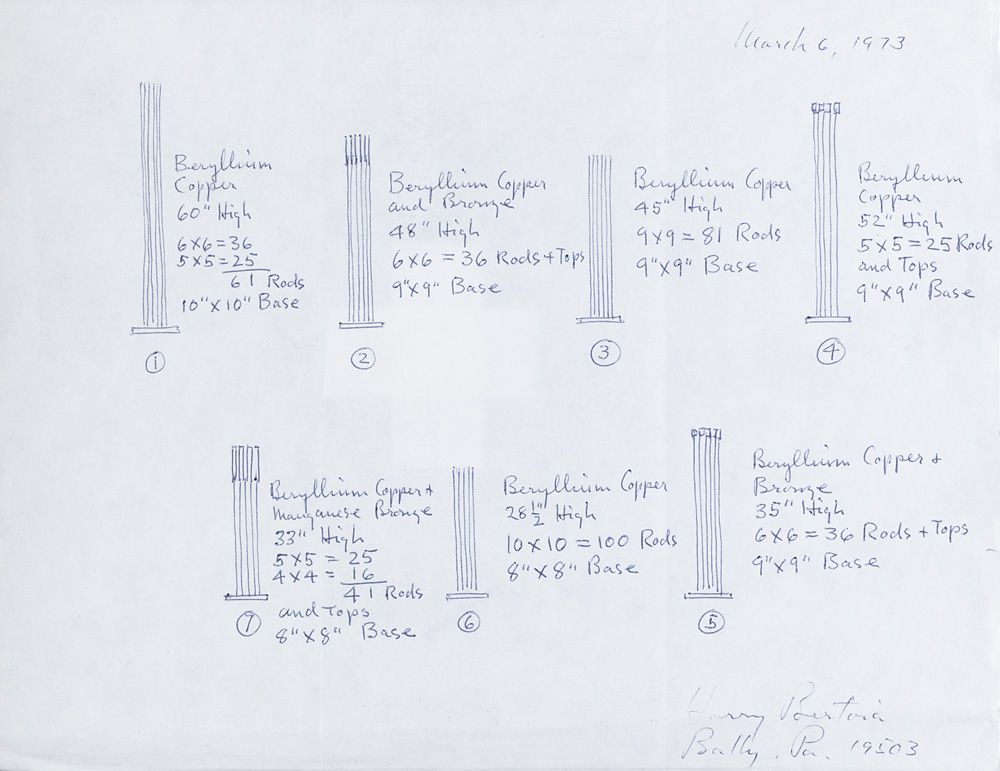 March 6, 1973
Beryllium
Copper
60" High
6x6=36
5x5=25
61 Rods
10"x10" Base
①
Beryllium Copper
and Bronze
48" High
6x6=36 Rods+Tops
9"x9" Base
②
Beryllium Copper
45" High
9x9=81 Rods
9"x9" Base
③
Beryllium
Copper
52" High
5x5=25 Rods
and Tops
9"x9" Base
④
Beryllium Copper +
Manganese Bronze
33" High
5x5=25
4x4=16
41 Rods
and Tops
8"x8" Base
⑦
Beryllium Copper
28½" High
10x10=100 Rods
8"x8" Base
⑥
Beryllium Copper +
Bronze
35" High
6x6=36 Rods + Tops
9"x9" Base
⑤
Harry Bertoia
Bally, Pa. 19503